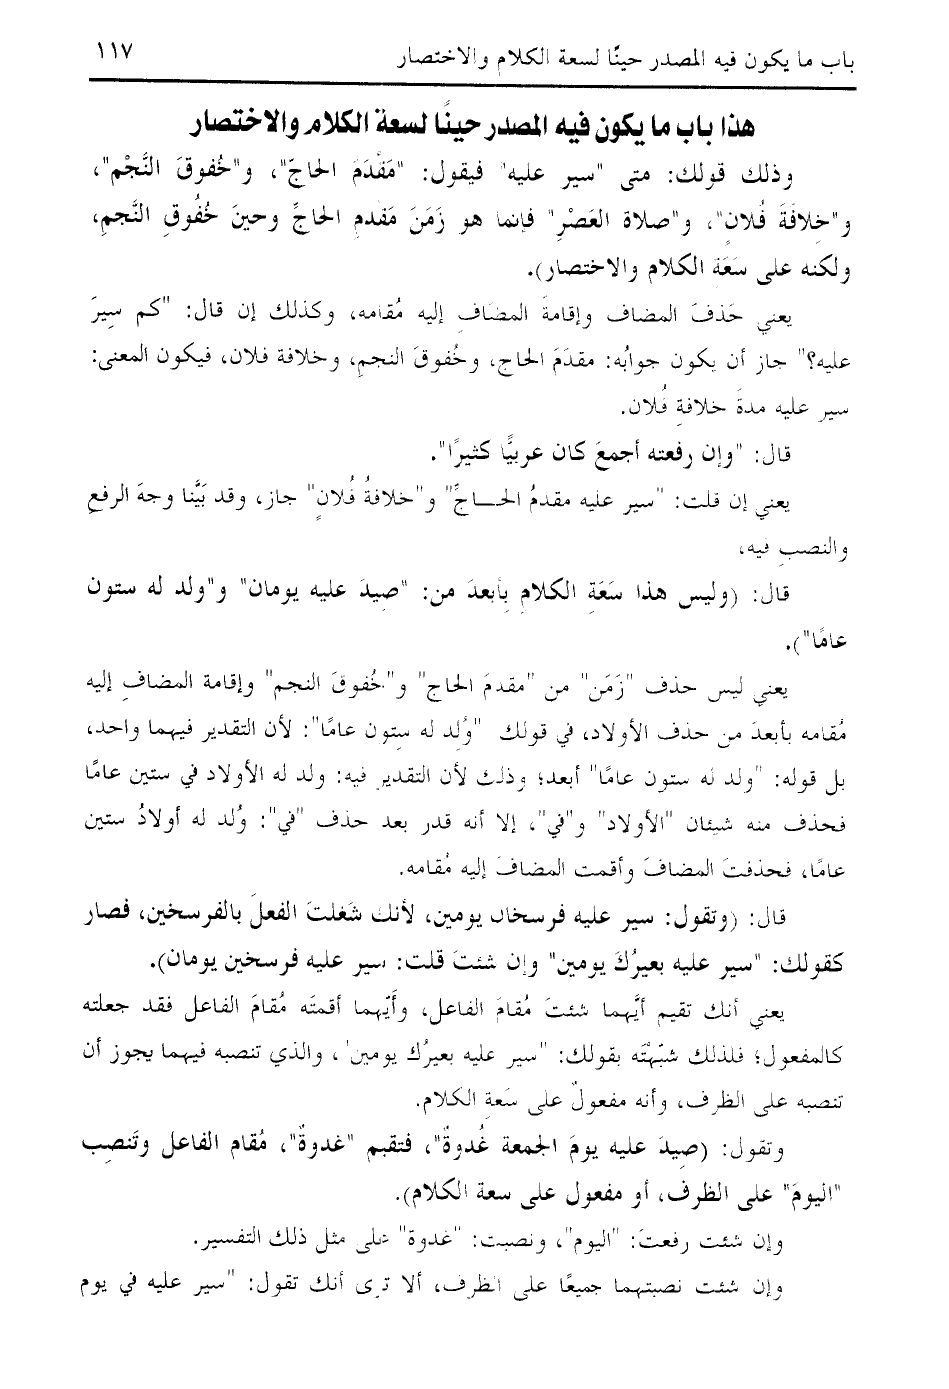 باب ما يكون فيه المصدر حينًا لسعة الكلام والاختصار ١١٧
هذا باب ما يكون فيه المصدر حينًا لسعة الكلام والاختصار
وذلك قولك: متى "سير عليه" فيقول: "مَقْدَمَ الحاجّ"، و"خُفوقَ النَّجْم"،
و"خلافَةَ فُلان"، و"صلاة العَصْرِ" فإنما هو زَمَنَ مَقدمِ الحاجِّ وحينَ خُفُوقِ النَّجمِ،
ولكنه على سَعَة الكلام والاختصار).
يعني حَذفَ المضاف وإقامةَ المضَافِ إليه مُقامه، وكذلك إن قال: "كم سِيرَ
عليه؟" جاز أن يكون جوابُه: مقدَمَ الحاج، وخُفوقَ النجمِ، وخلافة فلان، فيكون المعنى:
سير عليه مدةَ خلافةِ فُلان.
قال: "وإن رفعته أجمعَ كان عربيًّا كثيرًا".
يعني إن قلت: "سير عليه مقدمُ الحـــاجِّ" و"خلافةُ فُلانٍ" جاز، وقد بَيَّنا وجهَ الرفعِ
والنصبِ فيه،
قال: (وليس هذا سَعَةِ الكلامِ بِأبعدَ من: "صِيدَ عليه يومان" و"ولد له ستون
عامًا").
يعني ليس حذف "زَمَن" من "مقدمَ الحاج" و"خُفوقَ النجم" وإقامة المضافِ إليه
مُقامه بأبعدَ من حذف الأولاد، في قولك "وُلِد له سِتون عامًا": لأن التقدير فيهما واحد،
بل قوله: "ولد له ستون عامًا" أبعد؛ وذلك لأن التقدير فيه: ولد له الأولاد في ستين عامًا
فحذف منه شيئان "الأولاد" و"في"، إلا أنه قدر بعد حذف "في": وُلد له أولادُ ستين
عامًا، فحذفتَ المضافَ وأقمت المضافَ إليه مُقامه.
قال: (وتقول: سير عليه فرسخان يومين، لأنك شَغلتَ الفعلَ بالفرسخين، فصار
كقولك: "سير عليه بعيرُكَ يومين" وإن شئتَ قلت: سير عليه فرسخين يومان).
يعني أنك تقيم أيَّهما شئتَ مُقامَ الفاعل، وأيّهما أقمتَه مُقامَ الفاعل فقد جعلته
كالمفعول؛ فلذلك شبّهْتَه بقولك: "سير عليه بعيرُك يومين"، والذي تنصبه فيهما يجوز أن
تنصبه على الظرف، وأنه مفعولٌ على سَعةِ الكلام.
وتقول: (صِيدَ عليه يومَ الجمعة غُدوةٌ"، فتقيم "غدوةٌ"، مُقام الفاعل وتَنصِب
"اليومَ" على الظرف، أو مفعول على سعة الكلام).
وإن شئت رفعتَ: "اليوم"، ونصبت: "غدوة" على مثل ذلك التفسير.
وإن شئت نصبتهما جميعًا على الظرف، ألا ترى أنك تقول: "سير عليه في يوم